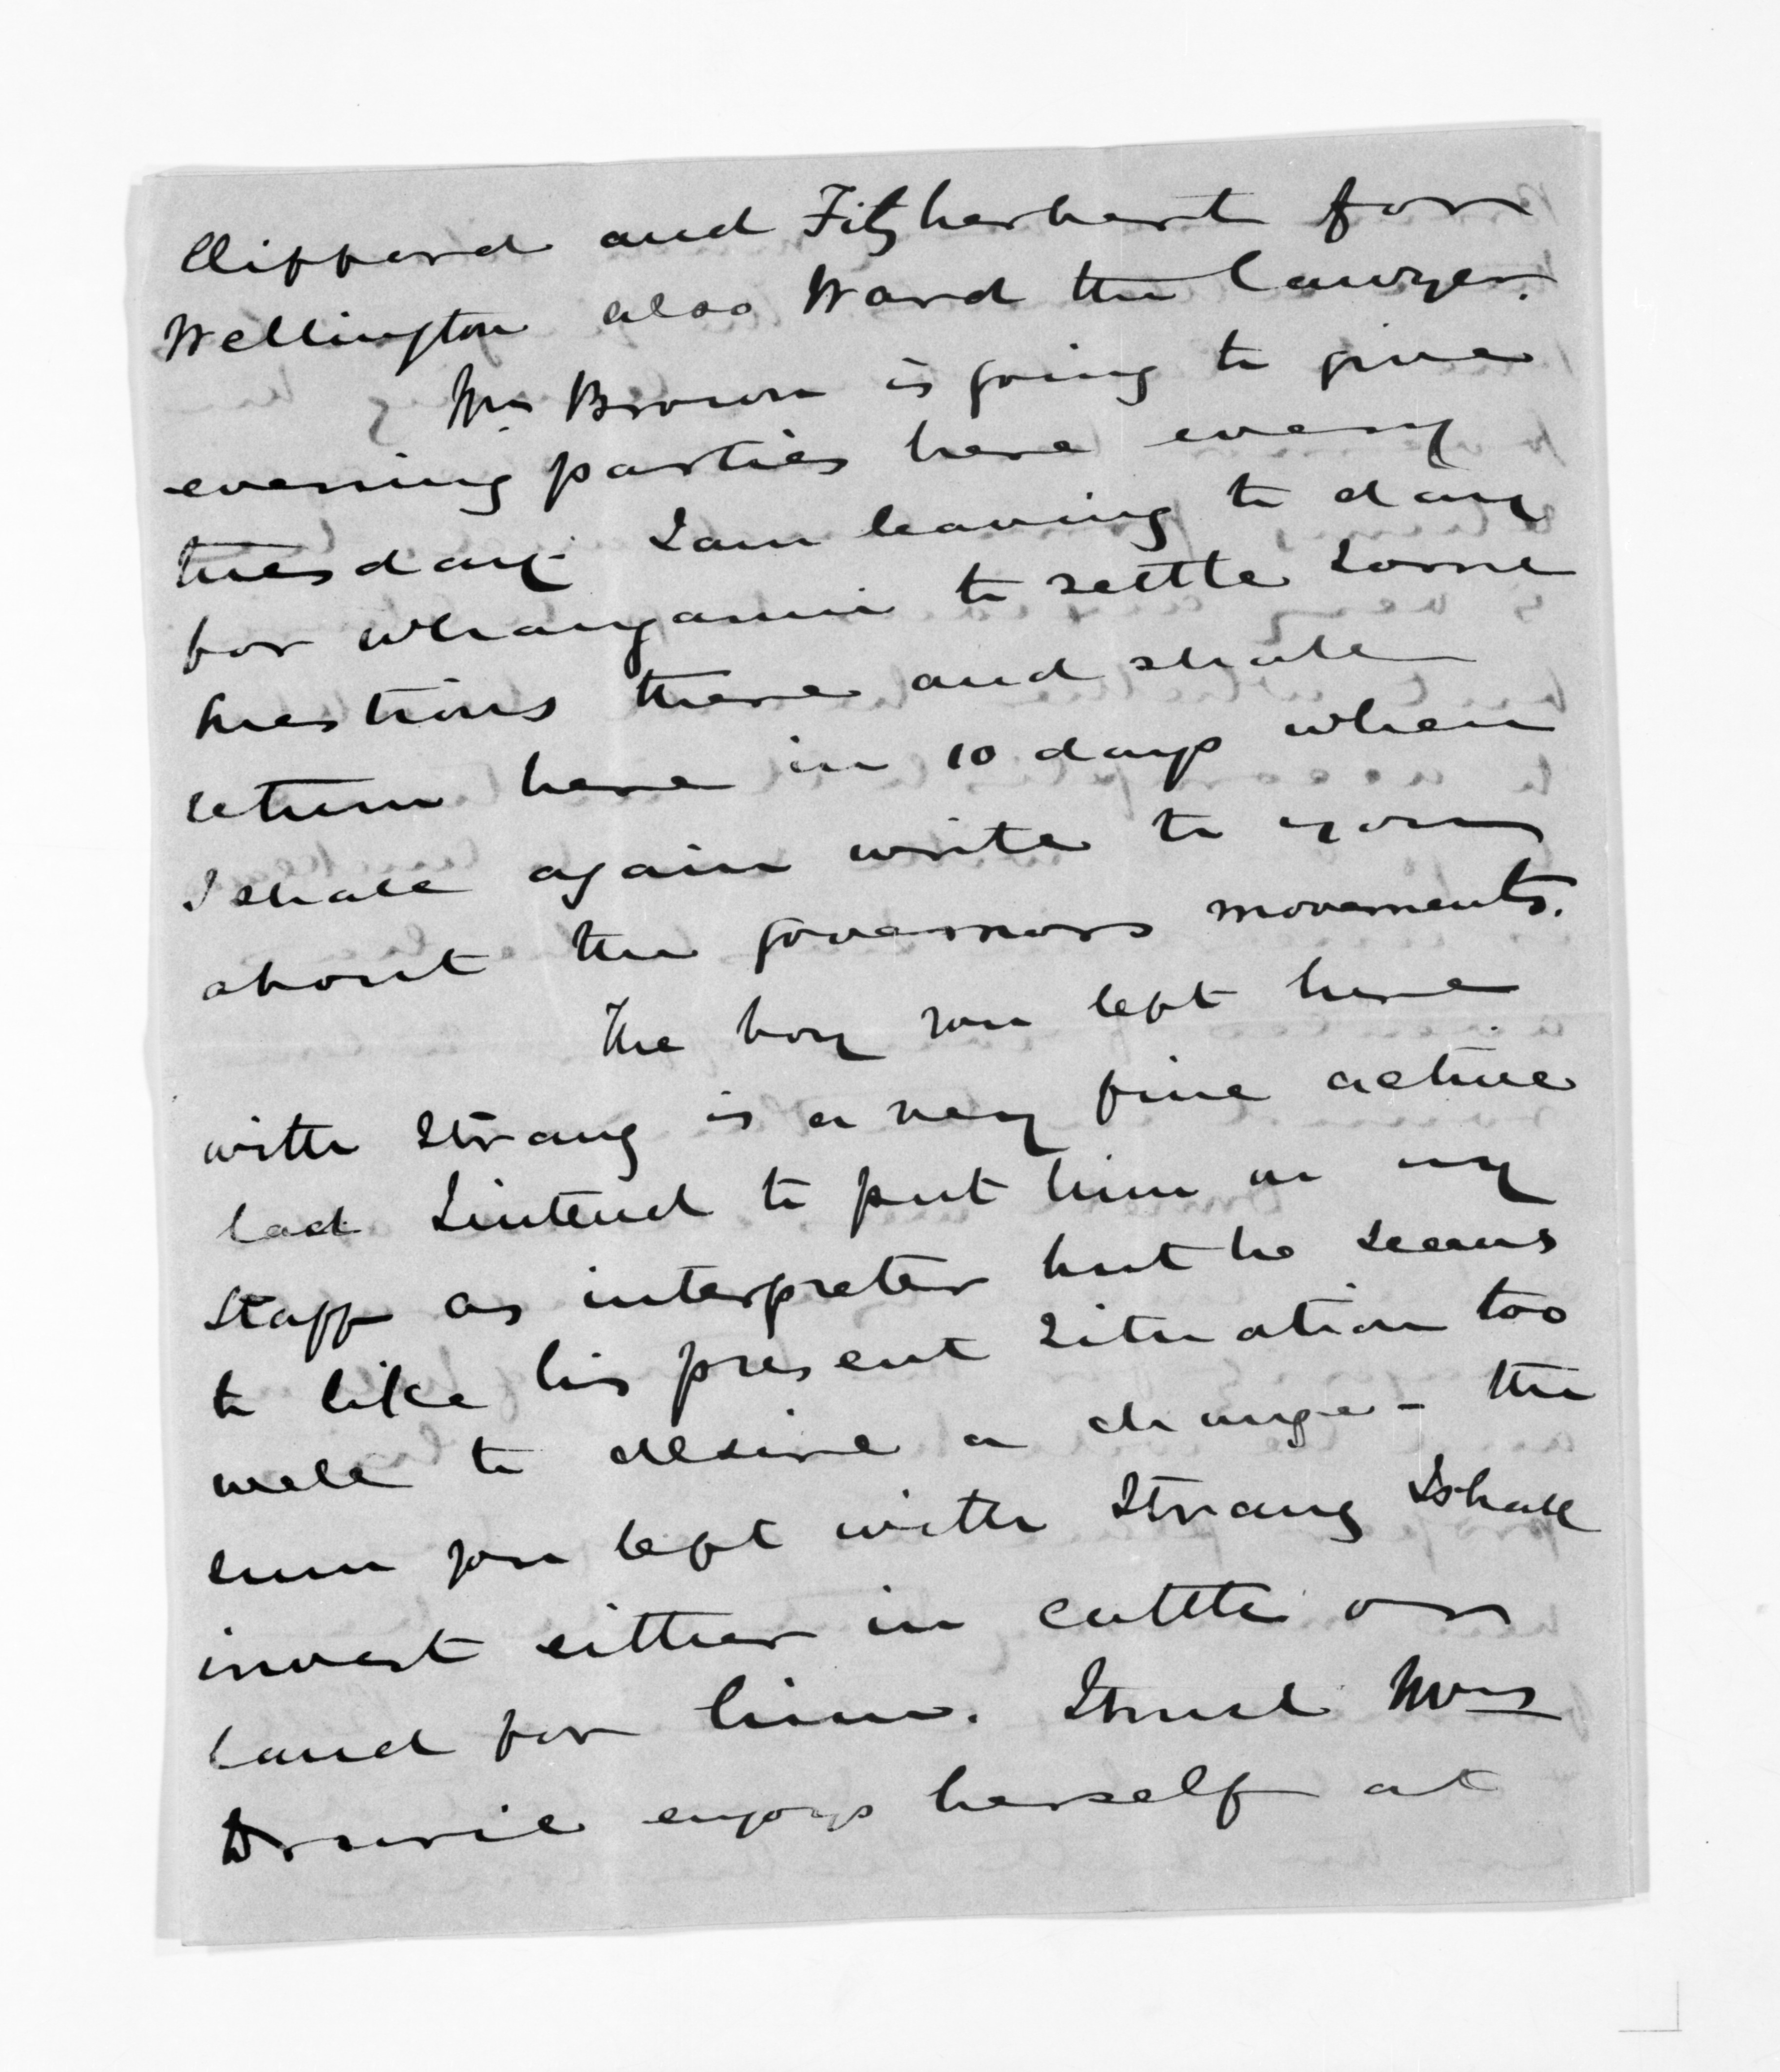 Clifford and Fitzherbert for
Wellington also Ward the lawyer.
Mrs Brown is going to give
evening parties here every
tuesday. I am leaving to day
for Whanganui to settle some
questions there and shall
return here in 10 days when
I shall again write to you
about the governors movements.
The boy you left here
with Strang is a very fine active
lad I intend to put him on my
staff as interpreter but he seems
to like his present situation too
well to desire a change - the
sum you left with Strang I shall
invest either in cattle or
land for him. I trust Mrs
Drurie enjoys herself at